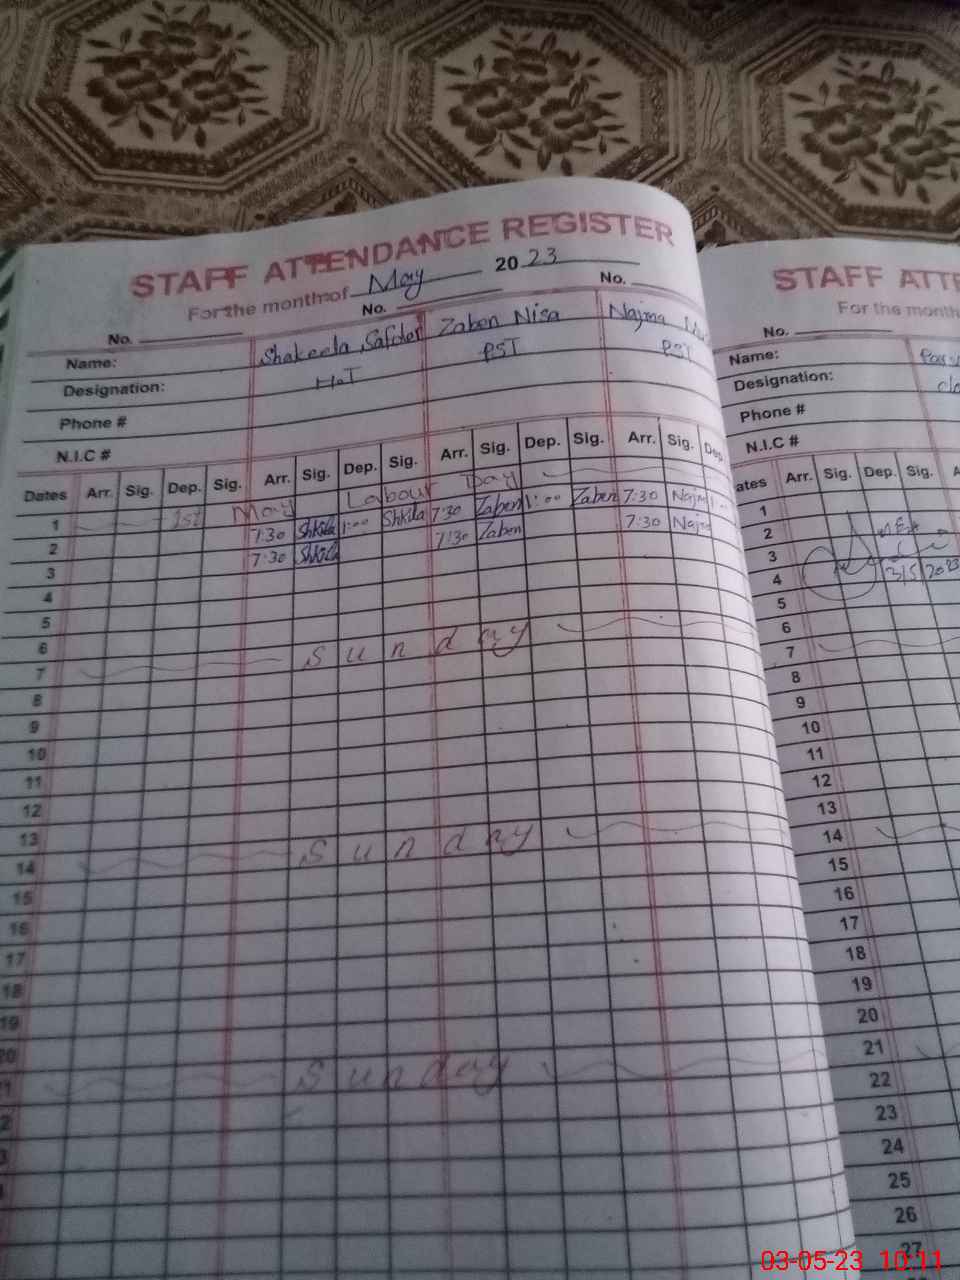 STAFF ATTENDANCE REGISTER
For the month of May 20 23
No. No. No.
Name: Shakeela Safder Zaben Nisa Najma
Designation: HoT PST PST
Phone #
N.I.C #
Dates Arr. Sig. Dep. Sig. Arr. Sig. Dep. Sig. Arr. Sig. Dep. Sig. Arr. Sig. Dep.
1 1st May Labour Day
2 7:30 Shkila 1:00 Shkila 7:30 Zaben 1:00 Zaben 7:30 Najm
3 7:30 Shkila 7:30 Zaben 7:30 Najm
4
5
6
7 Sunday
8
9
10
11
12
13
14 Sunday
15
16
17
18
19
20
21 Sunday
STAFF ATTE
For the month
No.
Name:
Designation:
Phone #
N.I.C #
ates Arr. Sig. Dep. Sig. A
1
2
3
4 3/5/2023
5
6
7
8
9
10
11
12
13
14
15
16
17
18
19
20
21
22
23
24
25
26
27
03-05-23 10:11